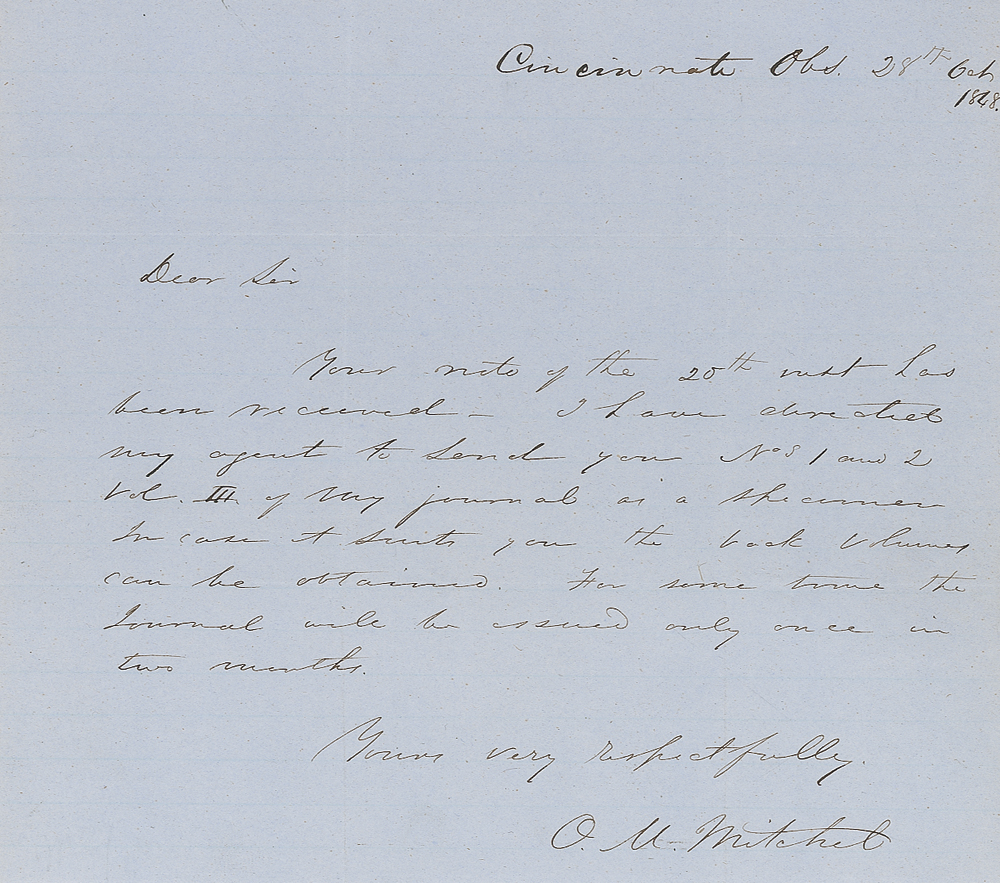 Cincinnati Obs. 28th Oct
1848.
Dear Sir
Your note of the 20th inst has
been received - I have directed
my agent to send you Nos 1 and 2
Vol. III of my journal as a specimen
In case it suits you the back volumes
can be obtained. For some time the
Journal will be issued only once in
two months.
Yours very respectfully.
O. M. Mitchel